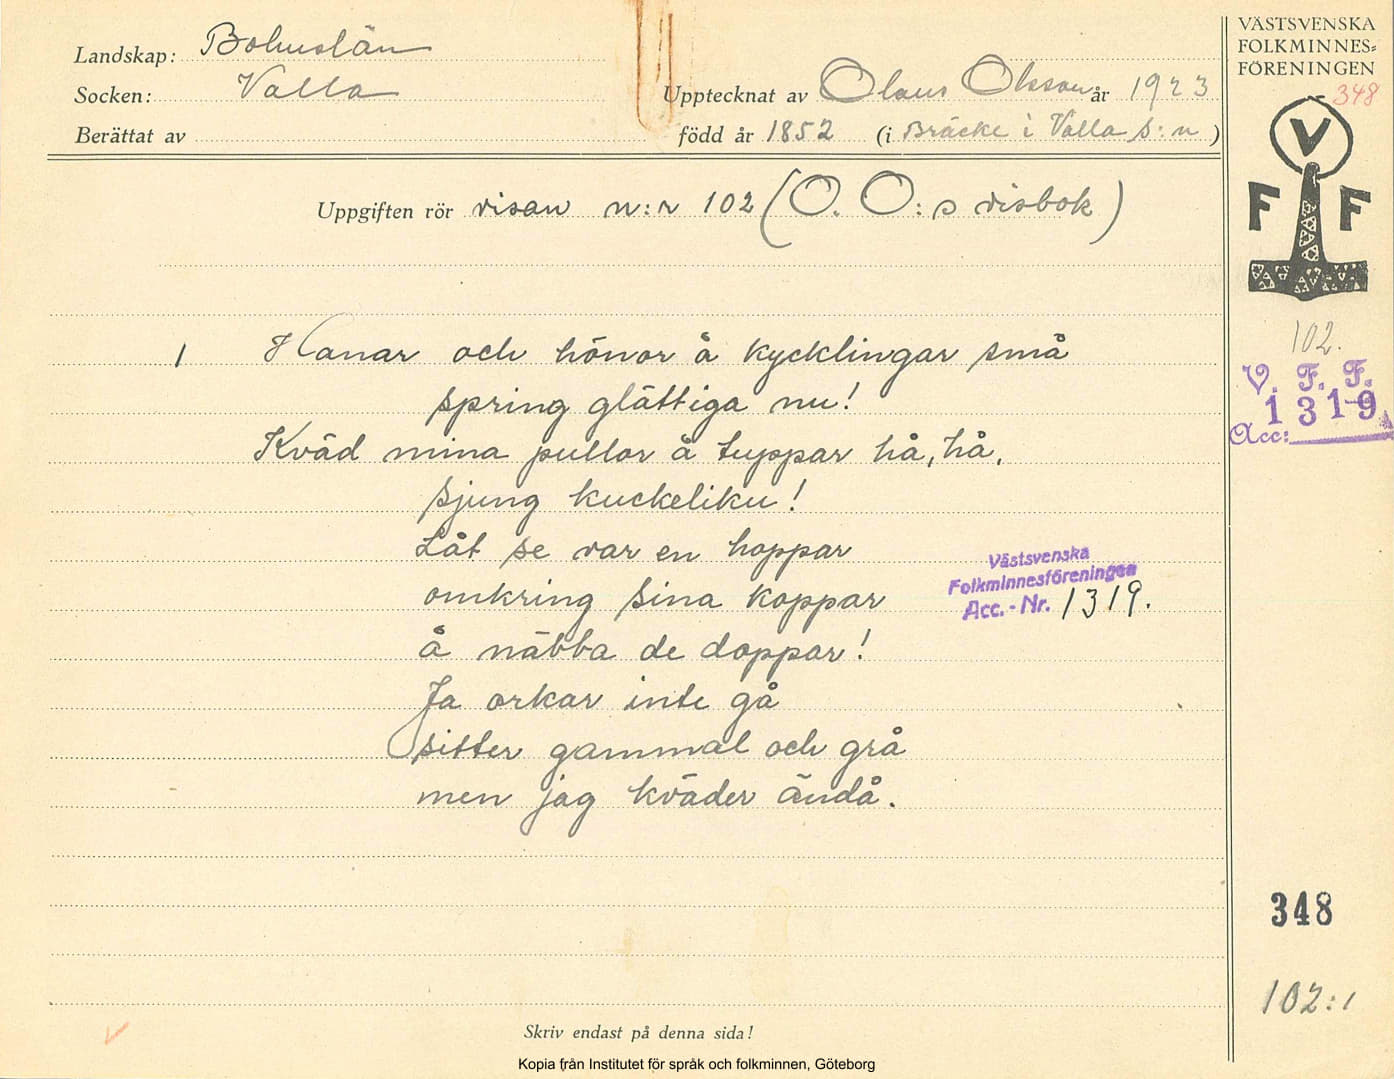 Landskap: Bohuslän
Socken: Valla
Upptecknat av Olaus Olsson år 1923
Berättat av
född år 1852 (i Bräcke i Valla s:n)
Uppgiften rör visan n:r 102 (O. O:s visbok)
1 Hanar och hönor å kycklingar små
spring glättiga nu!
Kväd mina pullor å tuppar hå, hå,
sjung kuckeliku!
Låt se var en hoppar
omkring sina koppar
å näbba de doppar!
Ja orkar inte gå
sitter gammal och grå
men jag kväder ändå.
Västsvenska
Folkminnesföreningen
Acc.-Nr. 1319.
Skriv endast på denna sida!
Kopia från Institutet för språk och folkminnen, Göteborg
VÄSTSVENSKA
FOLKMINNES=
FÖRENINGEN
348
V
F F
102.
V. F. F.
1319
Acc:
348
102:1